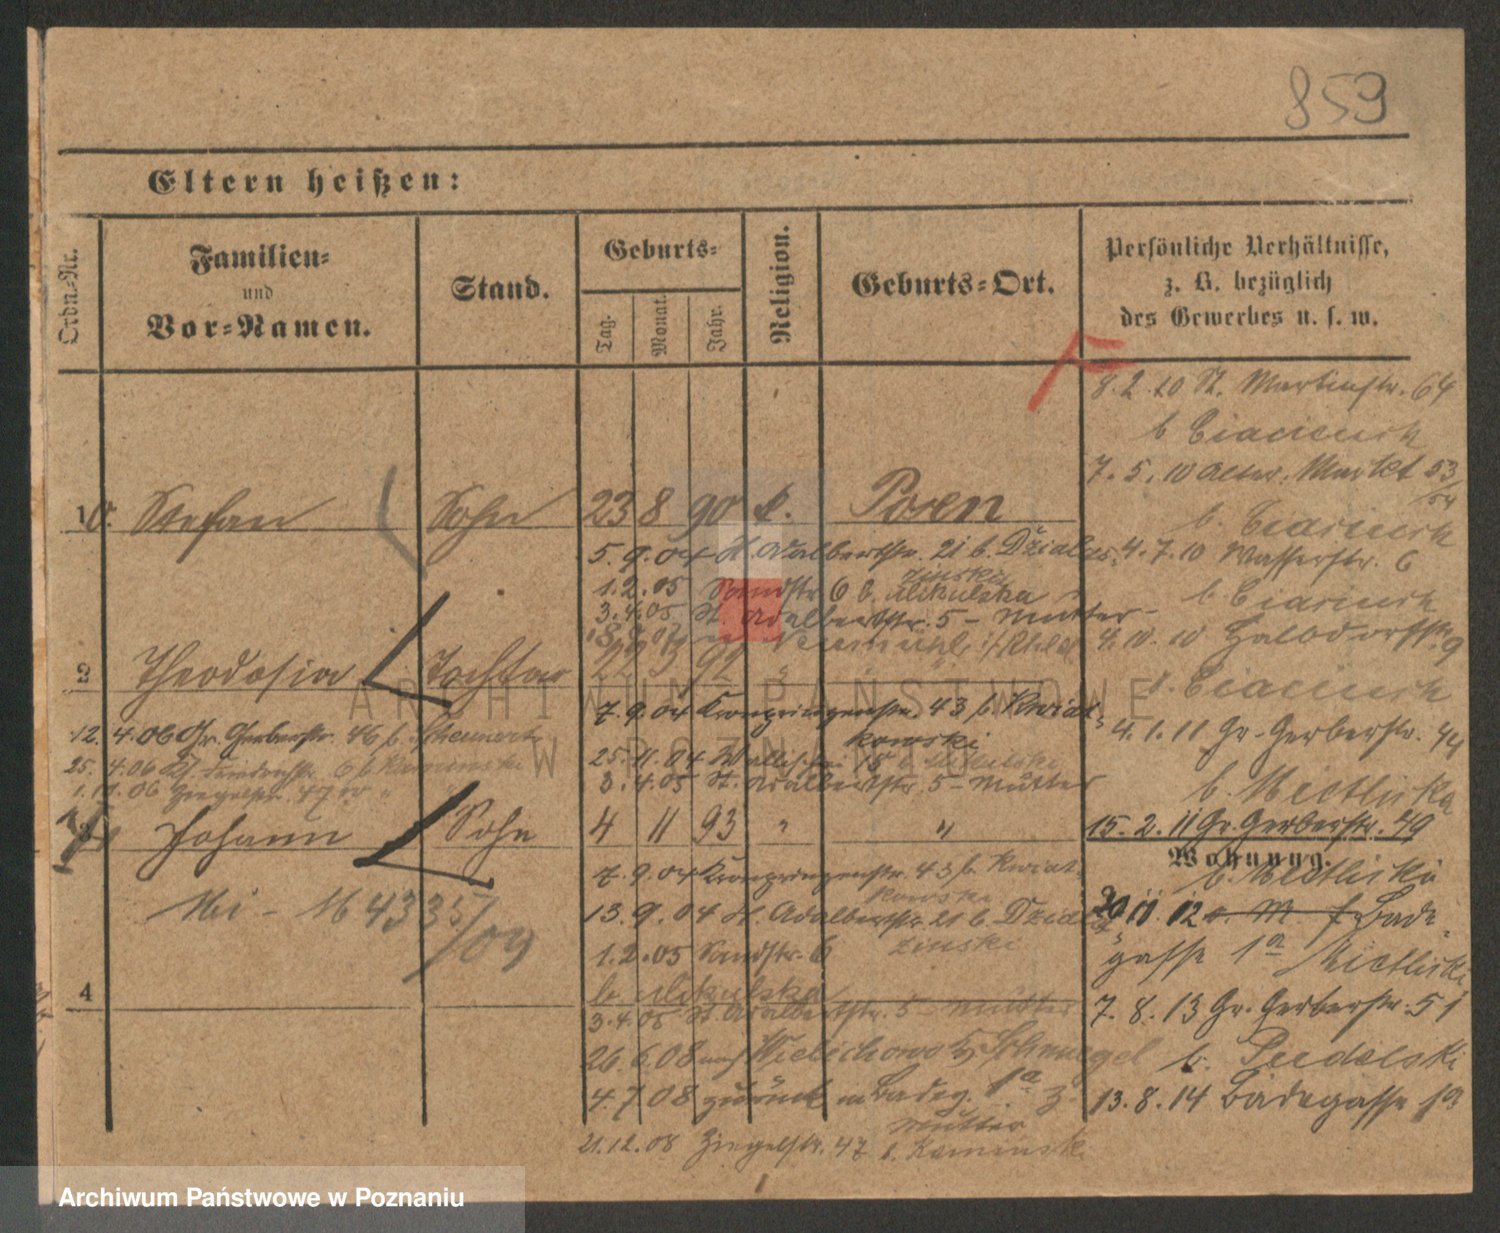 859
Eltern heißen:
Ordn.-Nr.
Familien-
und
Vor-Namen.
Stand.
Geburts-
Tag.
Monat.
Jahr.
Religion.
Geburts-Ort.
Persönliche Verhältnisse,
z. B. bezüglich
des Gewerbes u. s. w.
8.2.10 St. Martinstr. 64
7.5.10 Alter Markt 53/54
1 Stefan Sohn 23 8 90 k. Posen
5.9.04 St. Adalbertstr. 21 b. Dzialo-
szinski
4.7.10 Wasserstr. 6
1.2.05 Sandstr 6 b. Mikulska
3.4.05 St. Adalbertstr. 5 - Mutter
4.10.10 Halbdorfstr. 9
2 Theodosia Tochter 22 3 92 "
7.9.04 Kronprinzenstr. 43 b. Kwiat-
kowski
4.1.11 Gr. Gerberstr. 44
12.4.06 Gr. Gerberstr. 46 b.
25.4.06 b Kaminski
1.11.06 Ziegelstr. 47
25.11.04 Wallischei 15 b. Mikulski
3.4.05 St. Adalbertstr. 5 - Mutter
b. Mietlicka
3 Johann Sohn 4 11 93 " "
15.2.11 Gr. Gerberstr. 49
Wohnung.
b. Mietlicki
7.9.04 Kronprinzenstr. 43 b. Kwiat-
kowski
13.9.04 St. Adalbertstr. 21 b. Dzialo-
szinski
20.11.12 Bade-
gasse 1a Mietlicki
M 4335/09
1.2.05 Sandstr. 6
b. Mikulska
4
3.4.05 St. Adalbertstr. 5 - Mutter
7.8.13 Gr. Gerberstr. 51
26.6.08 nach Wielichowo Schmiegel
4.7.08 zurück in Badeg. 1a z.
Mutter
13.8.14 Badegasse 1a
21.12.08 Ziegelstr. 47 b. Kaminski
ARCHIWUM PAŃSTWOWE
W POZNANIU
Archiwum Państwowe w Poznaniu